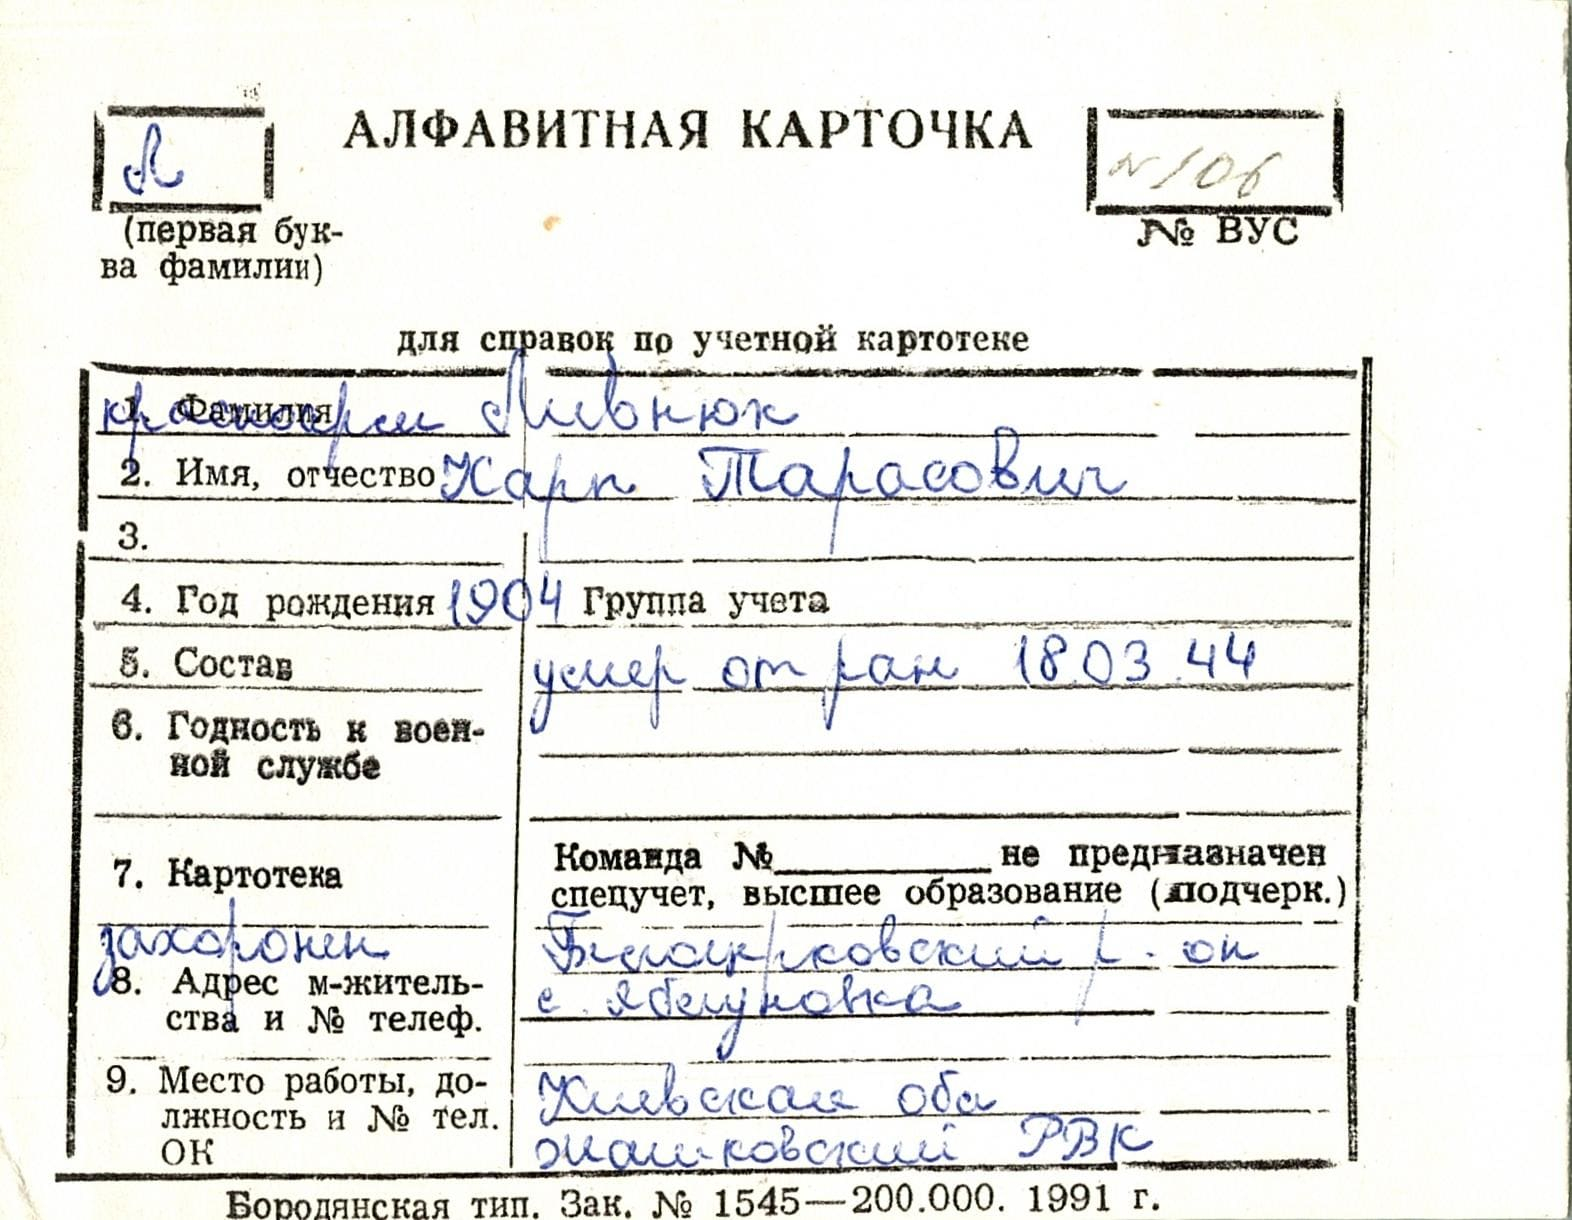 Л
АЛФАВИТНАЯ КАРТОЧКА
№ 106
(первая бук-
ва фамилии)
№ ВУС
для справок по учетной картотеке
1. Фамилия красноарм Ливнюк
2. Имя, отчество Карп Тарасович
3.
4. Год рождения 1904 Группа учета
5. Состав умер от ран 18.03.44
6. Годность к воен-
ной службе
7. Картотека
Команда № не предназначен
спецучет, высшее образование (подчерк.)
захоронен Белоцерковский р-он
8. Адрес м-житель-
ства и № телеф.
с. Яблуновка
9. Место работы, до-
лжность и № тел.
ОК
Киевская обл
Жашковский РВК
Бородянская тип. Зак. № 1545—200.000. 1991 г.